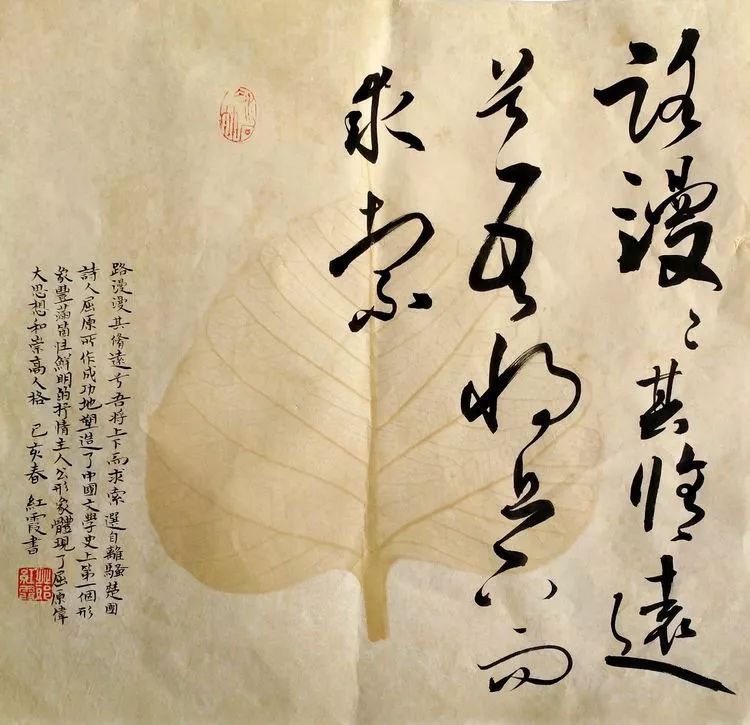 路漫々其脩遠
兮吾将上下而
求索
路漫漫其脩遠兮吾将上下而求索 選自離騷楚國
詩人屈原所作成功地塑造了中國文學史上第一個形
象豐滿箇性鮮明的抒情主人公形象體現了屈原偉
大思想和崇高人格 己亥春 紅霞書